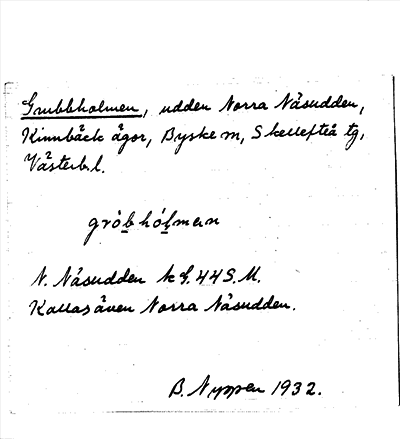 Grubbholmen, udden Norra Näsudden,
Kinnbäck ägor, Byske sn, Skellefteå tg,
Västerb. l.
gròbhólmɐn
N. Näsudden kf. 44 S.M.
Kallas även Norra Näsudden.
B. Nyppen 1932.